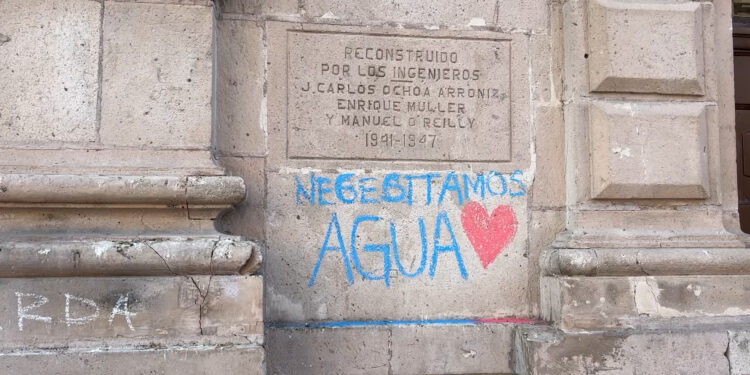 RECONSTRUIDO
POR LOS INGENIEROS
J. CARLOS OCHOA ARRONIZ
ENRIQUE MULLER
Y MANUEL O'REILLY
1941-1947
NECEBITAMOS
AGUA
RDA